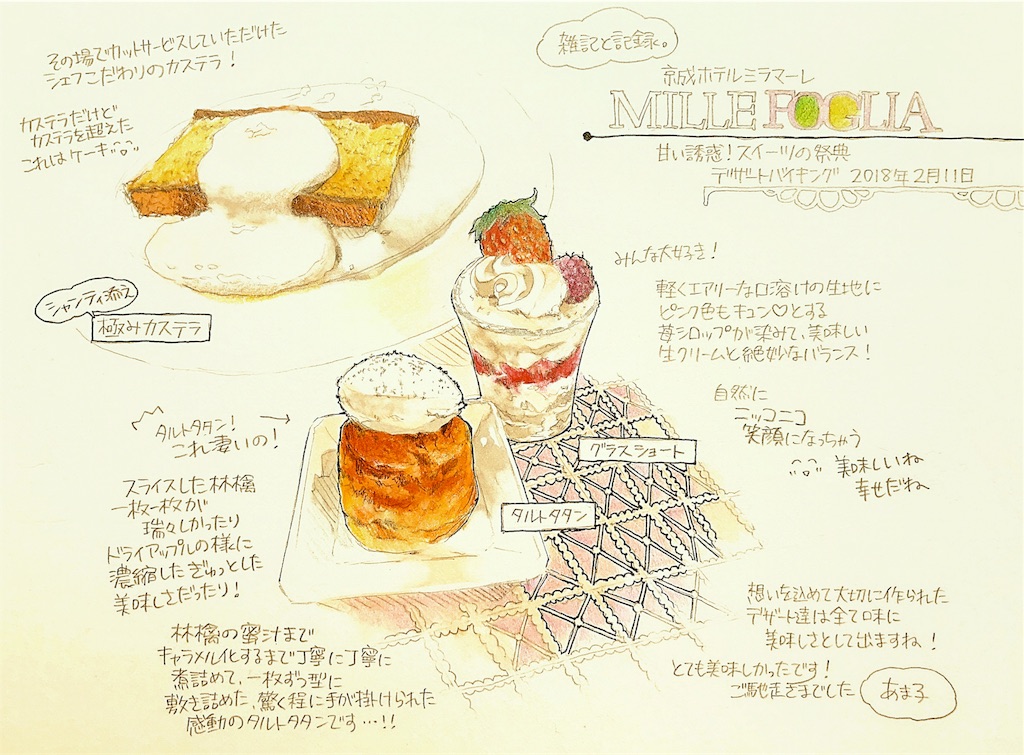 雑記と記録。
京成ホテルミラマーレ
MILLE FOGLIA
甘い誘惑！スイーツの祭典
デザートバイキング 2018年2月11日
その場でカットサービスしていただけた
シェフこだわりのカステラ！
カステラだけど
カステラを超えた
これはケーキ
シャンティ添え
極みカステラ
みんな大好き！
軽くエアリーな口溶けの生地に
ピンク色もキュン♡とする
苺シロップが染みて、美味しい
生クリームと絶妙なバランス！
自然に
ニッコニコ
笑顔になっちゃう
美味しいね
幸せだね
グラスショート
タルトタタン！
これ凄いの！
スライスした林檎
一枚一枚が
瑞々しかったり
ドライアップルの様に
濃縮したぎゅっとした
美味しさだったり！
タルトタタン
林檎の蜜汁まで
キャラメル化するまで丁寧に丁寧に
煮詰めて、一枚ずつ型に
敷き詰めた、驚く程に手が掛けられた
感動のタルトタタンです…!!
想いを込めて大切に作られた
デザート達は全て味に
美味しさとして出ますね！
とても美味しかったです！
ご馳走さまでした
あま子